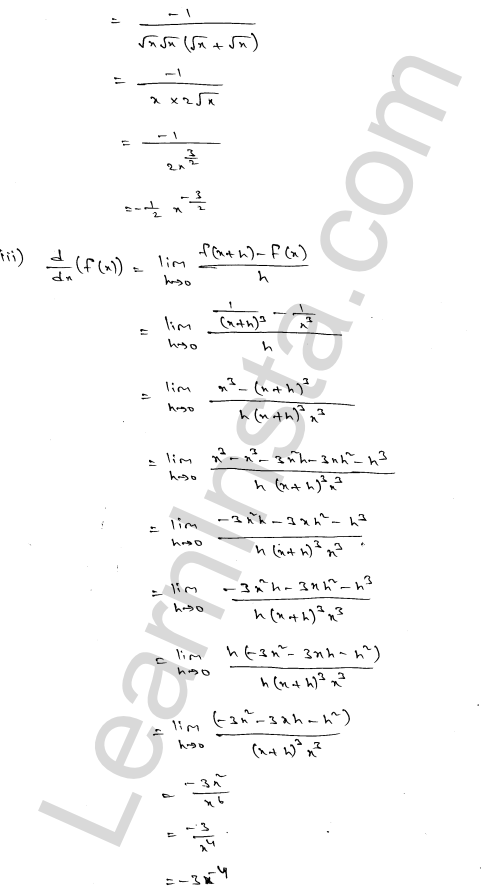 = -1 / (√x√x (√x + √x))
= -1 / (x × 2√x)
= -1 / 2x^(3/2)
= -1/2 x^(-3/2)
iii) d/dx (f(x)) = lim h→0 (f(x+h) - f(x)) / h
= lim h→0 (1/(x+h)³ - 1/x³) / h
= lim h→0 (x³ - (x+h)³) / (h(x+h)³ x³)
= lim h→0 (x³ - x³ - 3x²h - 3xh² - h³) / (h(x+h)³x³)
= lim h→0 (-3x²h - 3xh² - h³) / (h(x+h)³ x³)
= lim h→0 (-3x²h - 3xh² - h³) / (h(x+h)³ x³)
= lim h→0 h(-3x² - 3xh - h²) / (h(x+h)³ x³)
= lim h→0 (-3x² - 3xh - h²) / ((x+h)³ x³)
= -3x² / x⁶
= -3 / x⁴
= -3x⁻⁴
LearnInsta.com